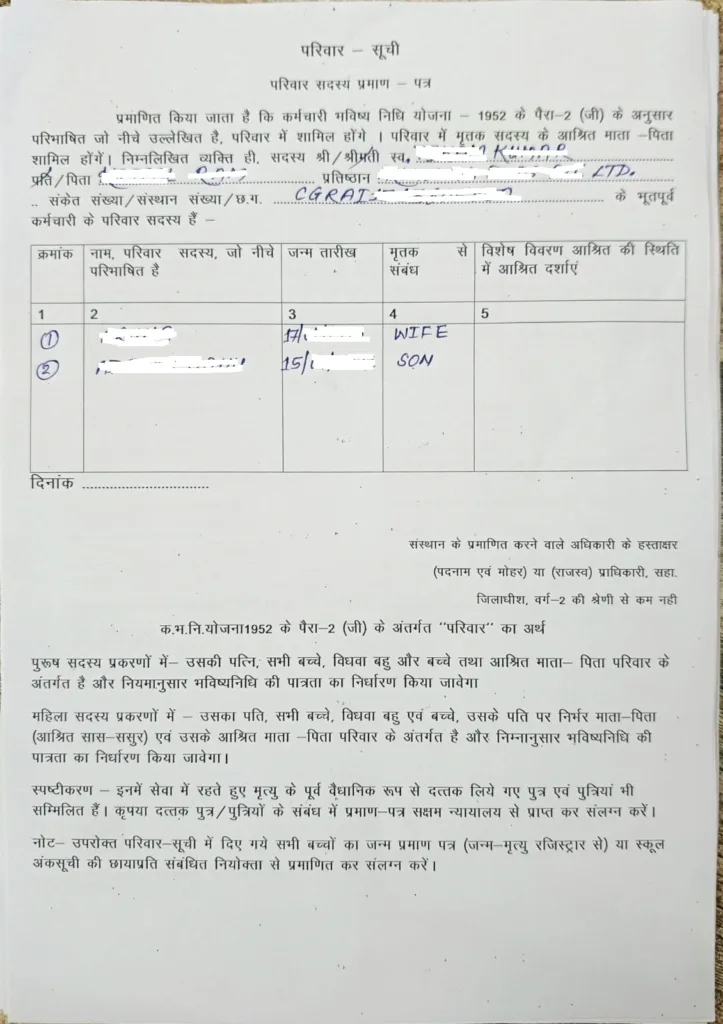 परिवार – सूची
परिवार सदस्य प्रमाण – पत्र
प्रमाणित किया जाता है कि कर्मचारी भविष्य निधि योजना – 1952 के पैरा–2 (जी) के अनुसार
परिभाषित जो नीचे उल्लेखित है, परिवार में शामिल होंगे । परिवार में मृतक सदस्य के आश्रित माता –पिता
शामिल होंगें। निम्नलिखित व्यक्ति ही, सदस्य श्री/श्रीमती स्व. KUMAR
प्रति/पिता RAM प्रतिष्ठान LTD.
.. संकेत संख्या/संस्थान संख्या/छ.ग. CGRAI के भूतपूर्व
कर्मचारी के परिवार सदस्य हैं –
क्रमांक नाम, परिवार सदस्य, जो नीचे जन्म तारीख मृतक से विशेष विवरण आश्रित की स्थिति
परिभाषित है संबंध में आश्रित दर्शाएं
1 2 3 4 5
① 17/ WIFE
② 15/ SON
दिनांक ................................
संस्थान के प्रमाणित करने वाले अधिकारी के हस्ताक्षर
(पदनाम एवं मोहर) या (राजस्व) प्राधिकारी, सहा.
जिलाधीश, वर्ग–2 की श्रेणी से कम नही
क.भ.नि.योजना1952 के पैरा–2 (जी) के अंतर्गत "परिवार" का अर्थ
पुरूष सदस्य प्रकरणों में– उसकी पत्नि, सभी बच्चे, विधवा बहु और बच्चे तथा आश्रित माता– पिता परिवार के
अंतर्गत है और नियमानुसार भविष्यनिधि की पात्रता का निर्धारण किया जावेगा
महिला सदस्य प्रकरणों में – उसका पति, सभी बच्चे, विधवा बहु एवं बच्चे, उसके पति पर निर्भर माता–पिता
(आश्रित सास–ससुर) एवं उसके आश्रित माता –पिता परिवार के अंतर्गत है और निम्नानुसार भविष्यनिधि की
पात्रता का निर्धारण किया जावेगा।
स्पष्टीकरण – इनमें सेवा में रहते हुए मृत्यु के पूर्व वैधानिक रूप से दत्तक लिये गए पुत्र एवं पुत्रियां भी
सम्मिलित हैं। कृपया दत्तक पुत्र/पुत्रियों के संबंध में प्रमाण–पत्र सक्षम न्यायालय से प्राप्त कर संलग्न करें।
नोट– उपरोक्त परिवार–सूची में दिए गये सभी बच्चों का जन्म प्रमाण पत्र (जन्म–मृत्यु रजिस्ट्रार से) या स्कूल
अंकसूची की छायाप्रति संबंधित नियोक्ता से प्रमाणित कर संलग्न करें।